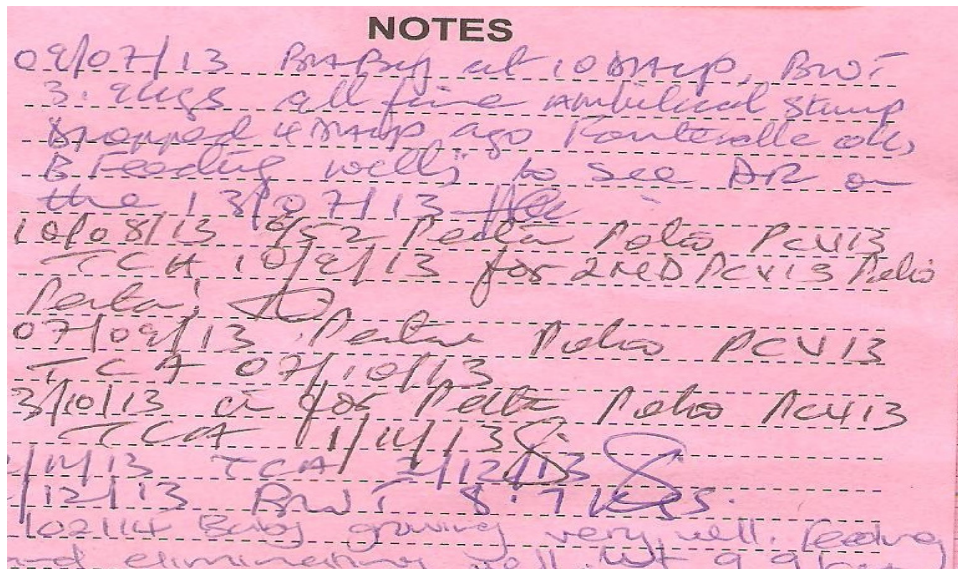 NOTES
09/07/13 Baby at 10 days, BWT
3.9kgs all fine umbilical stump
dropped 4 days ago Fontanelle ok,
B Feeding well; to see DR on
the 13/07/13
10/08/13 Penta Polio PCV13
TCA 10/9/13 for 2ND PCV13 Polio
Penta!
07/09/13 Penta Polio PCV13
TCA 07/10/13
3/10/13 for Penta Polio PCV13
TCA 1/11/13
/11/13 TCA 2/12/13
/12/13 BWT 8.7 kgs.
/02/14 Baby growing very well. feeding
and eliminating well. Wt 9.9